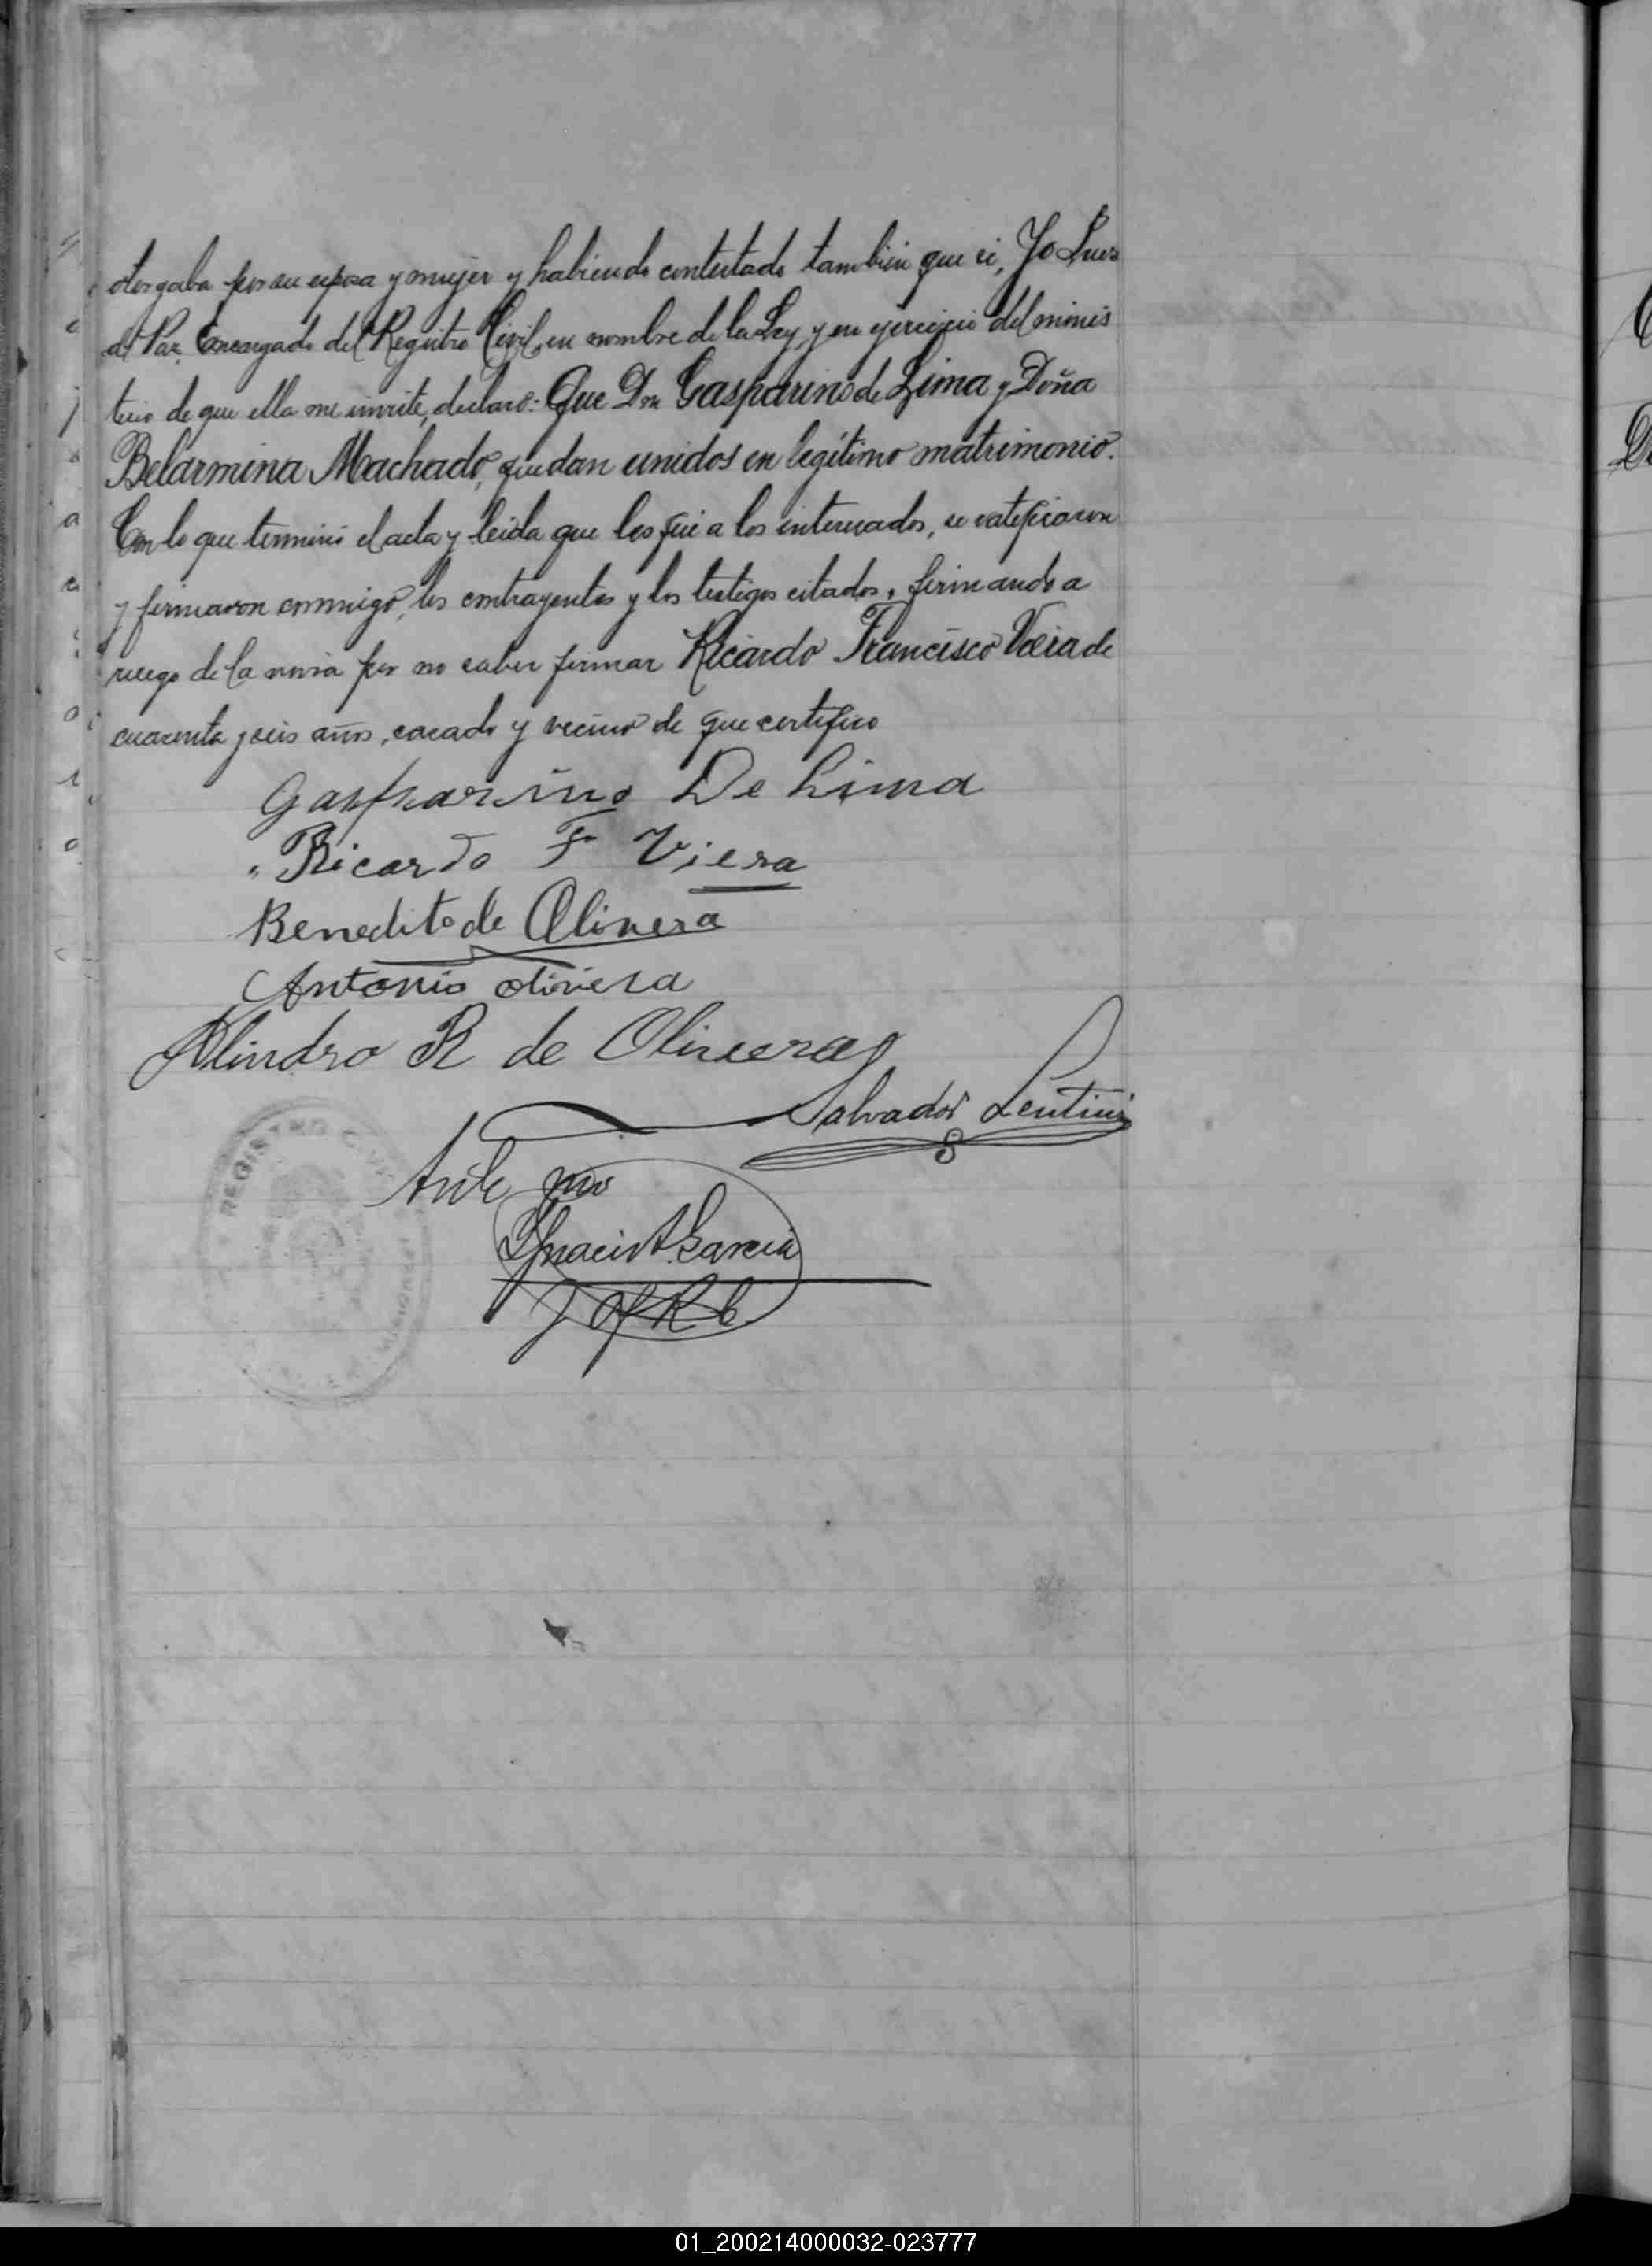 otorgaba por su esposa y mujer y habiendo contestado tambien que si, Yo Juez
de Paz Encargado del Registro Civil, en nombre de la Ley, y en ejercicio del minis
terio de que ella me inviste, declaro: Que Don Gasparino de Lima y Doña
Belarmina Machado, quedan unidos en legítimo matrimonio.
Con lo que terminó el acta y leida que les fué a los interesados, se ratificaron
y firmaron conmigo, los contrayentes y los testigos citados, firmando a
ruego de la novia por no saber firmar Ricardo Francisco Vieira de
cuarenta y seis años, casado y vecino de que certifico
Gasparino De Lima
Ricardo F Viera
Benedito de Olivera
Antonio Olivera
Alindro R de Olivera
Salvador Lentini
Ante mi
Ygnacio A. Garcia
REGISTRO CIVIL
01_200214000032-023777